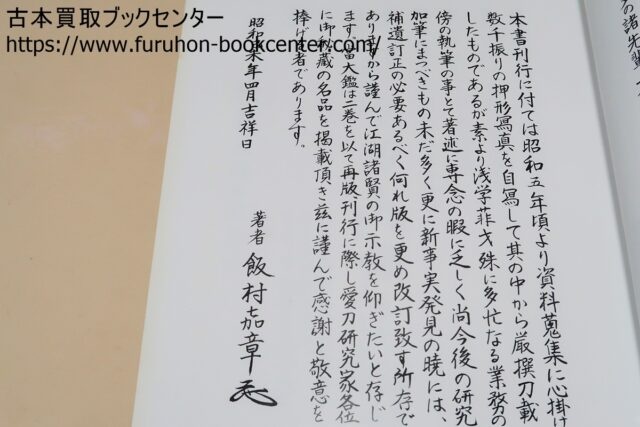 古本買取ブックセンター
https://www.furuhon-bookcenter.com/
の諸先輩
本書刊行に付ては昭和五年頃より資料蒐集に心掛け
数千振りの押形寫真を自寫して其の中から厳撰刀載
したものであるが素より浅学菲才殊に多忙なる業務の
傍の執筆の事とて著述に専念の暇に乏しく尚今後の研究
加筆にまつべきもの未だ多く更に新事実発見の暁には、
補遺訂正の必要あるべく何れ版を更め改訂致す所存で
ありますから謹んで江湖諸賢の御示教を仰ぎたいと存じ
ます。富大鑑は二巻を以て再版刊行に際し愛刀研究家各位
に御秘蔵の名品を掲載頂き茲に謹んで感謝と敬意を
捧げる者であります。
昭和未年四月吉祥日
著者 飯村嘉章